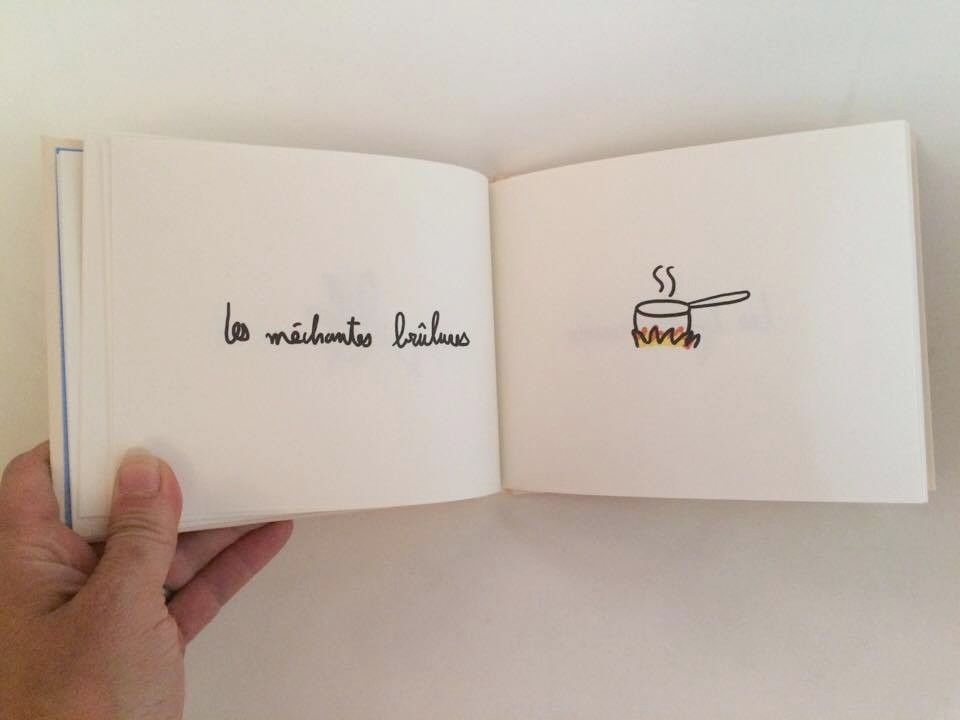 les méchantes brûlures